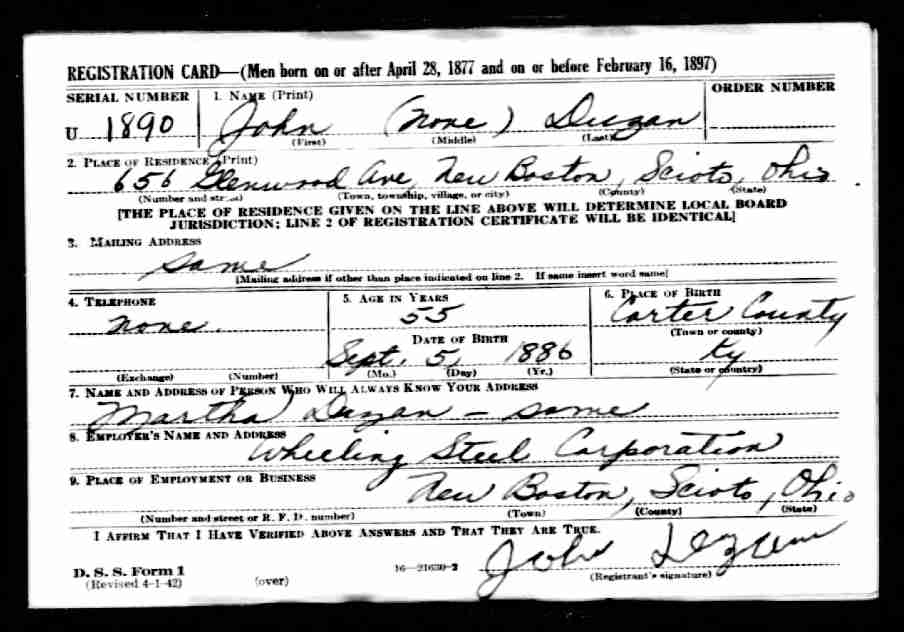 REGISTRATION CARD—(Men born on or after April 28, 1877 and on or before February 16, 1897)
SERIAL NUMBER
1. NAME (Print)
ORDER NUMBER
U 1890
John (none)
(First) (Middle) (Last)
2. PLACE OF RESIDENCE (Print)
656 Glenwood Ave, New Boston, Scioto, Ohio
(Number and street) (Town, township, village, or city) (County) (State)
[THE PLACE OF RESIDENCE GIVEN ON THE LINE ABOVE WILL DETERMINE LOCAL BOARD
JURISDICTION; LINE 2 OF REGISTRATION CERTIFICATE WILL BE IDENTICAL]
3. MAILING ADDRESS
same
[Mailing address if other than place indicated on line 2. If same insert word same]
4. TELEPHONE
none.
(Exchange) (Number)
5. AGE IN YEARS
55
DATE OF BIRTH
Sept. 5, 1886
(Mo.) (Day) (Yr.)
6. PLACE OF BIRTH
Carter County
(Town or county)
Ky
(State or country)
7. NAME AND ADDRESS OF PERSON WHO WILL ALWAYS KNOW YOUR ADDRESS
Martha — same
8. EMPLOYER'S NAME AND ADDRESS
Wheeling Steel Corporation
9. PLACE OF EMPLOYMENT OR BUSINESS
New Boston, Scioto, Ohio
(Number and street or R. F. D. number) (Town) (County) (State)
I AFFIRM THAT I HAVE VERIFIED ABOVE ANSWERS AND THAT THEY ARE TRUE.
John
D. S. S. Form 1
(Revised 4-1-42)
(over)
16—21630-2
(Registrant's signature)